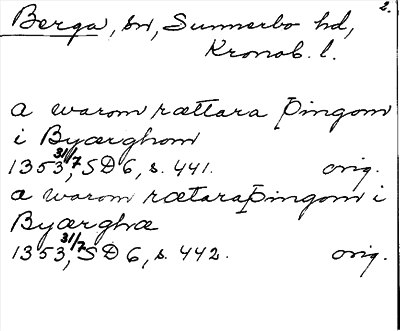 2.
Berga, sn, Sunnerbo hd,
Kronob. l.
a warom rættara þingom
i Byærghom
1353 31/7, SD 6, s. 441. orig.
a warom rætaraþingom i
Byærghæ
1353 31/7, SD 6, s. 442. orig.